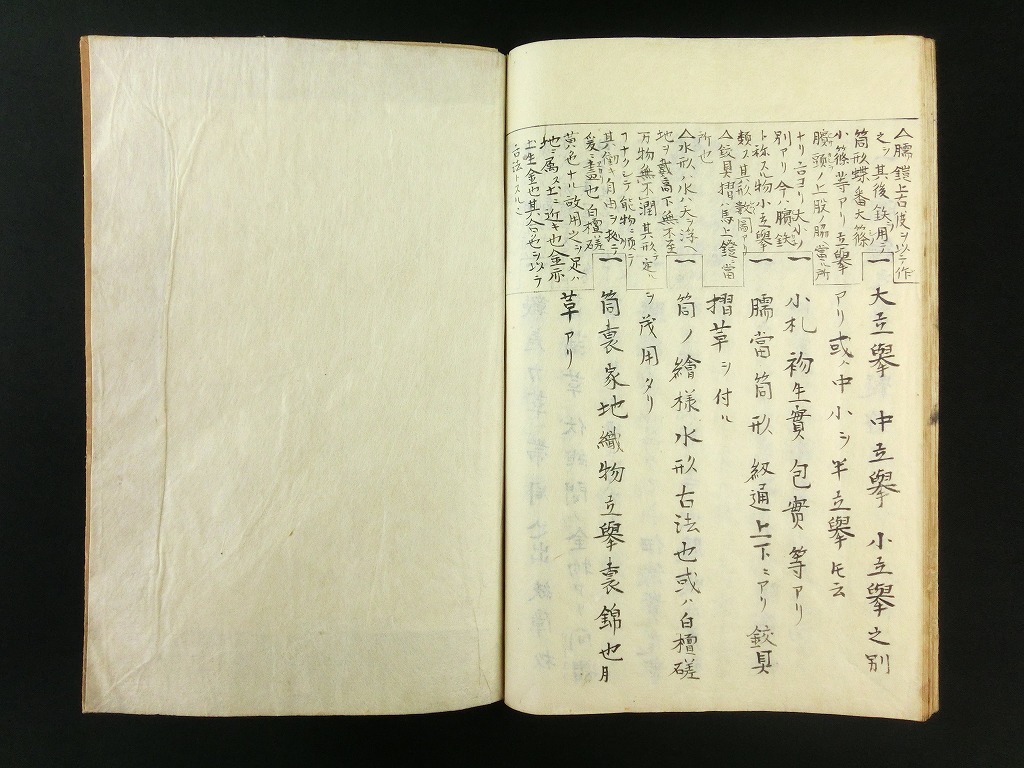 △臑鎧上古皮ヲ以テ作
之ヲ其後鉄用テ
筒形蝶番大篠
小篠等アリ立擧
膝頭ノ上股ノ脇當ル所
ナリ古ヨリ大小ノ
別アリ今ハ臑鉄
ト称スル物小立擧
類ス其形数圖アリ
△鉸具摺ハ馬上鐙ニ當
所也
△水形ハ水ハ天ヲ浮ヘ
地ヲ載高下無不至
万物無不潤其形定ル
フナクシテ能物ニ順テ
其働キ自由ヲ
爰ニ盡也白檀磋
黄色ナル故用之ヲ足ハ
地ニ属ス土ニ近キ也金亦
土生金也其合色ヲ以テ
古法トスル也
一 大立擧 中立擧 小立擧之別
アリ或ハ中小ヲ半立擧トモ云
一 小札 生實 包實 等アリ
一 臑當筒形 級通上下ニアリ 鉸具
摺革ヲ付ル
一 筒ノ繪様水形古法也或ハ白檀磋
ヲ茂用タリ
一 筒裏家地織物立擧裏錦也月
草アリ